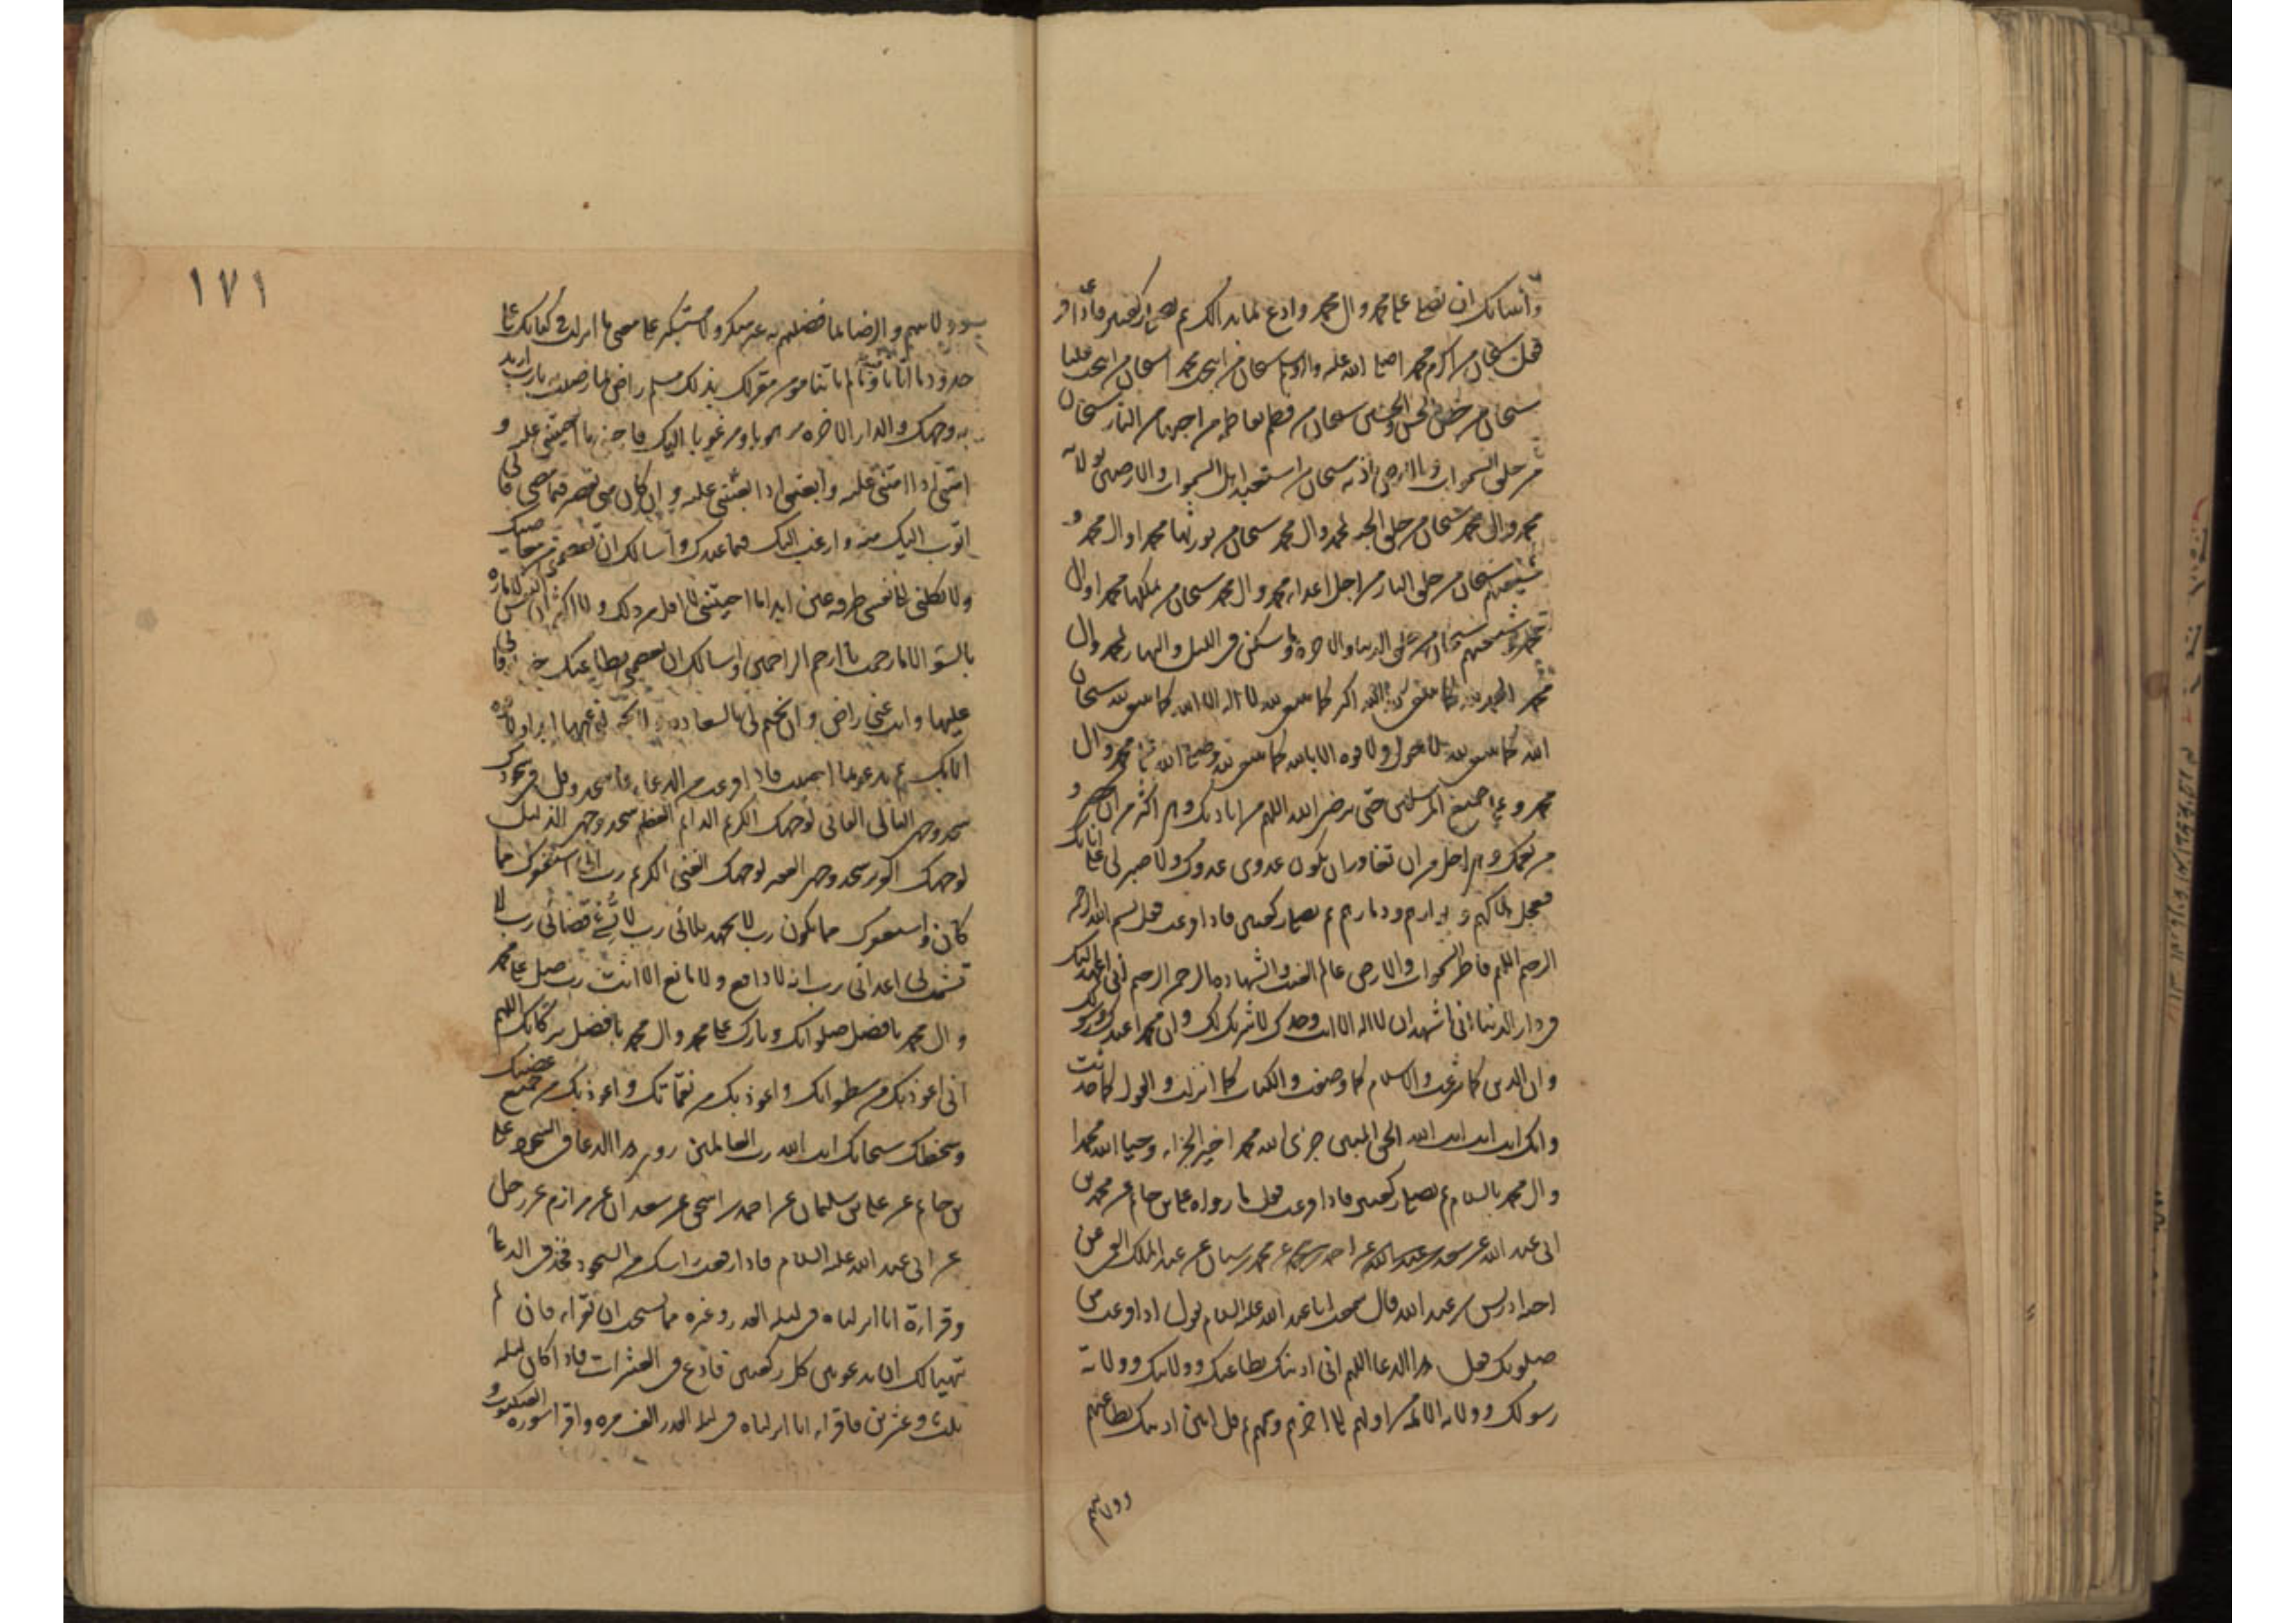 وأسألك ان تصلي على محمد وال محمد وادع بما بدا لك ثم تصلي ركعتين فاذا فر
فقل سبحان من اكرم محمدا صلى الله عليه واله سبحان من انتجب محمدا سبحان من انتجب عليا
سبحان من خص الحسن والحسين سبحان من فطم بفاطمة من احبها من النار سبحان
من خلق السموات والارض باذنه سبحان من استعبد اهل السموات والارضين بولاية
محمد وال محمد سبحان من خلق الجنة لمحمد وال محمد سبحان من يورثها محمدا وال محمد و
شيعتهم سبحان من خلق النار من اجل اعداء محمد وال محمد سبحان من يملكها محمدا وال
محمد وشيعتهم سبحان من خلق الدنيا والاخرة وما سكن في الليل والنهار لمحمد وال
محمد الحمد لله كما ينبغي لله الله اكبر كما ينبغي لله لا اله الا الله كما ينبغي لله سبحان
الله كما ينبغي لله لا حول ولا قوة الا بالله كما ينبغي لله وصلى الله على محمد وال
محمد وعلى جميع المرسلين حتى يرضى الله اللهم من اياديك وهي اكثر من ان تحصى و
من نعمك وهي اجل من ان تغادر ان يكون عدوي عدوك ولا صبر لي على اناتك
فعجل هلاكهم وبوارهم ودمارهم ثم تصلي ركعتين فاذا فرغت فقل بسم الله الرحمن
الرحيم اللهم فاطر السموات والارض عالم الغيب والشهادة الرحمن الرحيم اني اعهد اليك
في دار الدنيا اني اشهد ان لا اله الا انت وحدك لا شريك لك وان محمدا عبدك ورسولك
وان الدين كما شرعت والاسلام كما وصفت والكتاب كما انزلت والقول كما حدثت
وانك انت انت انت الله الحق المبين جزى الله محمدا خير الجزاء وحيا الله محمدا
وال محمد بالسلام ثم تصلي ركعتين فاذا فرغت فقل ما رواه علي بن حاتم عن محمد بن
ابي عبد الله عن سعد بن عبد الله عن احمد بن عن محمد بن سنان عن عبد الملك القمي عن
اخيه ادريس بن عبد الله قال سمعت ابا عبد الله عليه السلام يقول اذا فرغت من
صلوتك فقل هذا الدعا اللهم اني ادينك بطاعتك وولايتك وولاية
رسولك وولاية الائمة من اولهم الى اخرهم وتسميهم ثم قل امين ادينك بطاعتهم
وولايتهم
١٧١
وولايتهم والرضا بما فضلتهم به غير منكر ولا مستكبر على معنى ما انزلت في كتابك على
حدود ما اتانا فيه وما لم ياتنا مؤمن مقر لك بذلك مسلم راض بما رضيت به يا رب اريد
به وجهك والدار الاخرة مرهوبا ومرغوبا اليك فاحيني ما احييتني عليه و
امتني اذا امتني عليه وابعثني اذا بعثتني عليه وان كان مني تقصير فيما مضى فاني
اتوب اليك منه وارغب اليك فيما عندك واسالك ان تعصمني من معاصيك
ولا تكلني الى نفسي طرفة عين ابدا ما احييتني لا اقل من ذلك ولا اكثر ان النفس لامارة
بالسوء الا ما رحمت يا ارحم الراحمين واسالك ان تعصمني بطاعتك حتى
عليها وانت عني راض وان تختم لي بالسعادة ولا تحولني عنها ابدا ولا قوة
الا بك ثم تدعو بما احببت فاذا فرغت من الدعاء فاسجد وقل في سجودك
سجد وجهي البالي الفاني لوجهك الكريم الدائم العظيم سجد وجهي الذليل
لوجهك العزيز سجد وجهي الفقير لوجهك الغني الكريم رب اني استغفرك مما
كان واستغفرك مما يكون رب لا تجهد بلائي رب لا تسئ قضائي رب لا
تشمت بي اعدائي رب انه لا دافع ولا مانع الا انت رب صل على محمد
وال محمد بافضل صلواتك وبارك على محمد وال محمد بافضل بركاتك اللهم
اني اعوذ بك من سطواتك واعوذ بك من نقماتك واعوذ بك من جميع غضبك
وسخطك سبحانك انت الله رب العالمين روى هذا الدعا في السجود علي
بن حاتم عن علي بن سليمان عن احمد بن اسحق عن سعدان عن مرازم عن رجل
عن ابي عبد الله عليه السلام فاذا رفعت راسك من السجود فخذ في الدعاء
وقراءة انا انزلناه في ليلة القدر وغيره مما يستحب ان تقراء فان لم
يتهيا لك ان تدعو بين كل ركعتين فادع في العشرات فاذا كان ليلة
ثلث وعشرين فاقراء انا انزلناه في ليلة القدر الف مرة واقرا سورة العنكبوت و